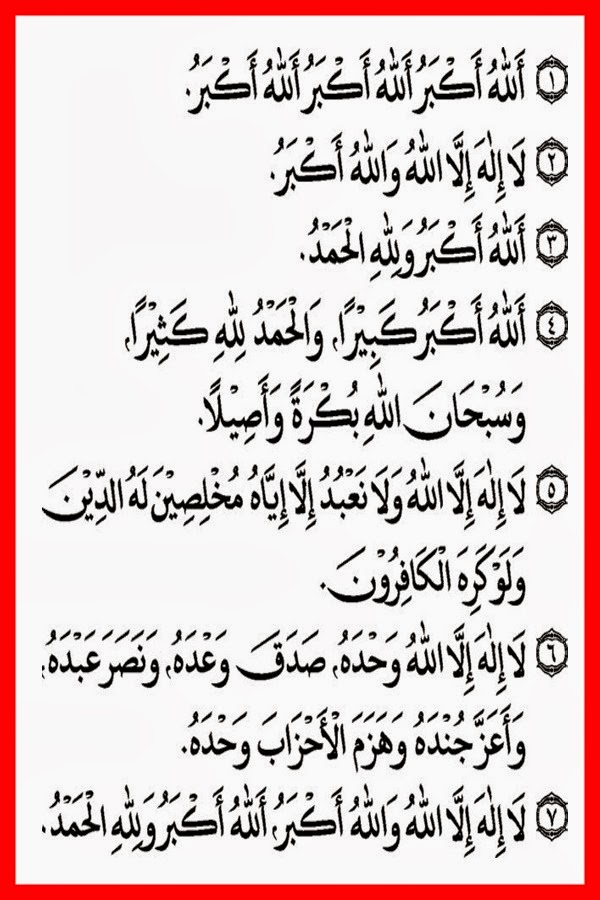 ١ أَللهُ أَكْبَرُ أَللهُ أَكْبَرُ أَللهُ أَكْبَرُ.
٢ لَا إِلٰهَ إِلَّا اللهُ وَاللهُ أَكْبَرُ.
٣ أَللهُ أَكْبَرُ وَلِلّٰهِ الْحَمْدُ.
٤ أَللهُ أَكْبَرُ كَبِيْرًا، وَالْحَمْدُ لِلّٰهِ كَثِيْرًا،
وَسُبْحَانَ اللهِ بُكْرَةً وَأَصِيْلًا.
٥ لَا إِلٰهَ إِلَّا اللهُ وَلَا نَعْبُدُ إِلَّا إِيَّاهُ مُخْلِصِيْنَ لَهُ الدِّيْنَ
وَلَوْ كَرِهَ الْكَافِرُوْنَ.
٦ لَا إِلٰهَ إِلَّا اللهُ وَحْدَهُ، صَدَقَ وَعْدَهُ، وَنَصَرَ عَبْدَهُ،
وَأَعَزَّ جُنْدَهُ وَهَزَمَ الْأَحْزَابَ وَحْدَهُ.
٧ لَا إِلٰهَ إِلَّا اللهُ وَاللهُ أَكْبَرُ، أَللهُ أَكْبَرُ وَلِلّٰهِ الْحَمْدُ.